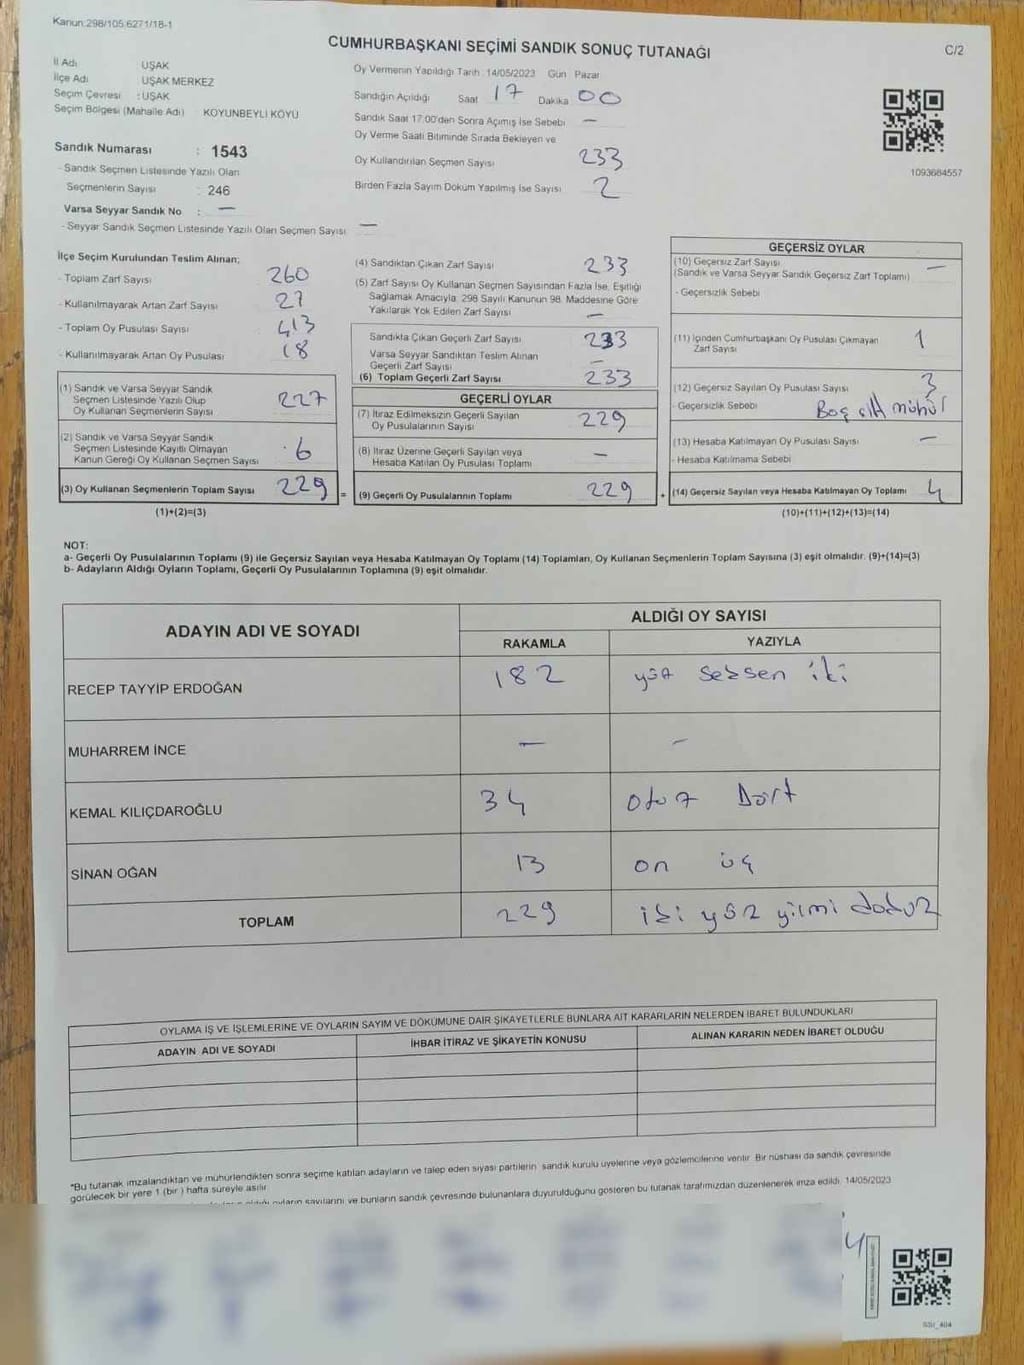 Kanun:298/105:6271/18-1
CUMHURBAŞKANI SEÇİMİ SANDIK SONUÇ TUTANAĞI
C/2
İl Adı UŞAK
İlçe Adı UŞAK MERKEZ
Seçim Çevresi : UŞAK
Seçim Bölgesi (Mahalle Adı) KOYUNBEYLİ KÖYÜ
Oy Vermenin Yapıldığı Tarih : 14/05/2023 Gün Pazar
Sandığın Açıldığı Saat 17 Dakika 00
Sandık Saat 17:00'den Sonra Açımış İse Sebebi —
Oy Verme Saati Bitiminde Sırada Bekleyen ve
Oy Kullandırılan Seçmen Sayısı 233
Birden Fazla Sayım Döküm Yapılmış İse Sayısı 2
1093684557
Sandık Numarası : 1543
- Sandık Seçmen Listesinde Yazılı Olan
Seçmenlerin Sayısı : 246
Varsa Seyyar Sandık No : —
- Seyyar Sandık Seçmen Listesinde Yazılı Olan Seçmen Sayısı —
İlçe Seçim Kurulundan Teslim Alınan;
- Toplam Zarf Sayısı 260
- Kullanılmayarak Artan Zarf Sayısı 27
- Toplam Oy Pusulası Sayısı 413
- Kullanılmayarak Artan Oy Pusulası 18
(1) Sandık ve Varsa Seyyar Sandık
Seçmen Listesinde Yazılı Olup
Oy Kullanan Seçmenlerin Sayısı 227
(2) Sandık ve Varsa Seyyar Sandık
Seçmen Listesinde Kayıtlı Olmayan
Kanun Gereği Oy Kullanan Seçmen Sayısı 6
(3) Oy Kullanan Seçmenlerin Toplam Sayısı 229 =
(1)+(2)=(3)
(4) Sandıktan Çıkan Zarf Sayısı 233
(5) Zarf Sayısı Oy Kullanan Seçmen Sayısından Fazla İse, Eşitliği
Sağlamak Amacıyla; 298 Sayılı Kanunun 98. Maddesine Göre
Yakılarak Yok Edilen Zarf Sayısı —
Sandıkta Çıkan Geçerli Zarf Sayısı 233
Varsa Seyyar Sandıktan Teslim Alınan
Geçerli Zarf Sayısı —
(6) Toplam Geçerli Zarf Sayısı 233
GEÇERLİ OYLAR
(7) İtiraz Edilmeksizin Geçerli Sayılan
Oy Pusulalarının Sayısı 229
(8) İtiraz Üzerine Geçerli Sayılan veya
Hesaba Katılan Oy Pusulası Toplamı —
(9) Geçerli Oy Pusulalarının Toplamı 229 +
GEÇERSİZ OYLAR
(10) Geçersiz Zarf Sayısı —
(Sandık ve Varsa Seyyar Sandık Geçersiz Zarf Toplamı)
- Geçersizlik Sebebi
(11) İçinden Cumhurbaşkanı Oy Pusulası Çıkmayan
Zarf Sayısı 1
(12) Geçersiz Sayılan Oy Pusulası Sayısı 3
- Geçersizlik Sebebi Boş çift mühür
(13) Hesaba Katılmayan Oy Pusulası Sayısı —
- Hesaba Katılmama Sebebi
(14) Geçersiz Sayılan veya Hesaba Katılmayan Oy Toplamı 4
(10)+(11)+(12)+(13)=(14)
NOT:
a- Geçerli Oy Pusulalarının Toplamı (9) ile Geçersiz Sayılan veya Hesaba Katılmayan Oy Toplamı (14) Toplamları, Oy Kullanan Seçmenlerin Toplam Sayısına (3) eşit olmalıdır. (9)+(14)=(3)
b- Adayların Aldığı Oyların Toplamı, Geçerli Oy Pusulalarının Toplamına (9) eşit olmalıdır.
ADAYIN ADI VE SOYADI ALDIĞI OY SAYISI
RAKAMLA YAZIYLA
RECEP TAYYİP ERDOĞAN 182 yüz seksen iki
MUHARREM İNCE — —
KEMAL KILIÇDAROĞLU 34 otuz Dört
SİNAN OĞAN 13 on üç
TOPLAM 229 iki yüz yilmi dokuz
OYLAMA İŞ VE İŞLEMLERİNE VE OYLARIN SAYIM VE DÖKÜMÜNE DAİR ŞİKAYETLERLE BUNLARA AİT KARARLARIN NELERDEN İBARET BULUNDUKLARI
ADAYIN ADI VE SOYADI İHBAR İTİRAZ VE ŞİKAYETİN KONUSU ALINAN KARARIN NEDEN İBARET OLDUĞU
*Bu tutanak imzalandıktan ve mühürlendikten sonra seçime katılan adayların ve talep eden siyasi partilerin sandık kurulu üyelerine veya gözlemcilerine verilir. Bir nüshası da sandık çevresinde
görülecek bir yere 1 (bir) hafta süreyle asılır.
oyların sayılarını ve bunların sandık çevresinde bulunanlara duyurulduğunu gösteren bu tutanak tarafımızdan düzenlenerek imza edildi. 14/05/2023